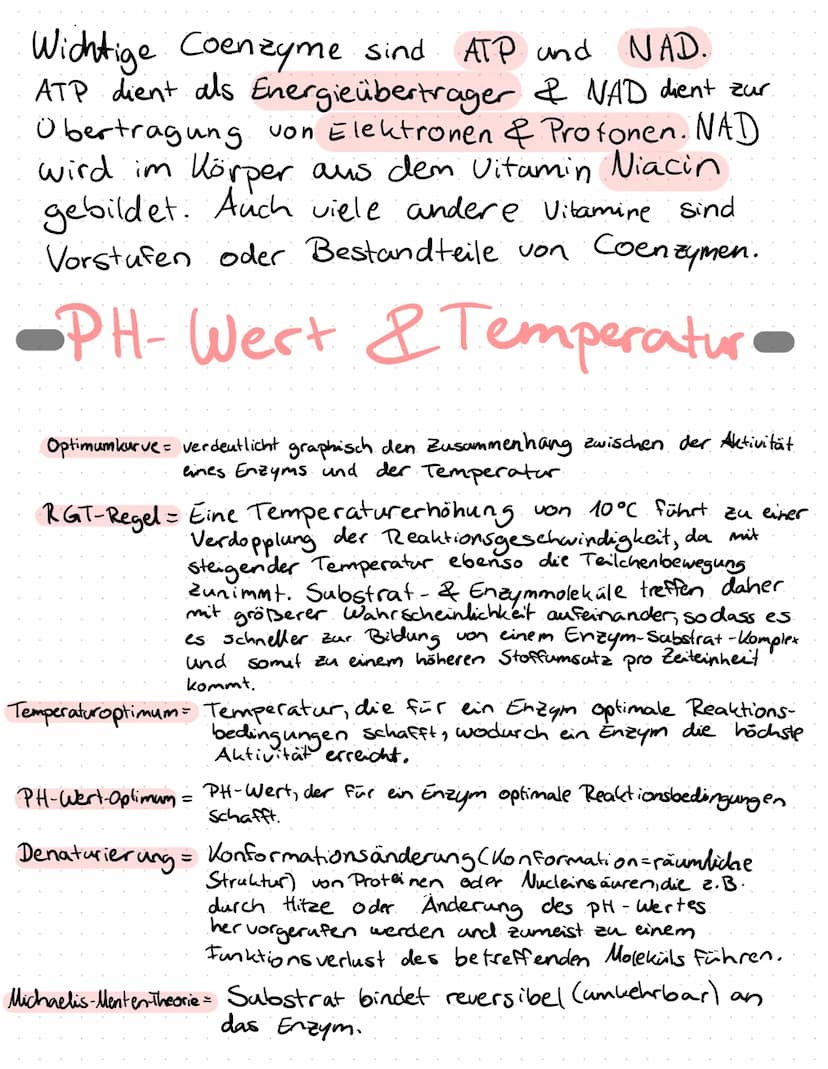 Wichtige Coenzyme sind ATP und NAD.
ATP dient als Energieüberträger & NAD dient zur
Übertragung von Elektronen & Protonen. NAD
wird im Körper aus dem Vitamin Niacin
gebildet. Auch viele andere Vitamine sind
Vorstufen oder Bestandteile von Coenzymen.
PH-Wert & Temperatur
Optimumkurve = verdeutlicht graphisch den Zusammenhang zwischen der Aktivität
eines Enzyms und der Temperatur
RGT-Regel = Eine Temperaturerhöhung von 10°C führt zu einer
Verdopplung der Reaktionsgeschwindigkeit, da mit
steigender Temperatur ebenso die Teilchenbewegung
zunimmt. Substrat- & Enzymmoleküle treffen daher
mit größerer Wahrscheinlichkeit aufeinander, sodass es
es schneller zur Bildung von einem Enzym-Substrat-Komplex
und somit zu einem höheren Stoffumsatz pro Zeiteinheit
kommt.
Temperaturoptimum = Temperatur, die für ein Enzym optimale Reaktions-
bedingungen schafft, wodurch ein Enzym die höchste
Aktivität erreicht.
PH-Wert-Optimum = PH-Wert, der für ein Enzym optimale Reaktionsbedingungen
schafft.
Denaturierung = Konformationsänderung (Konformation = räumliche
Struktur) von Proteinen oder Nucleinsäuren, die z.B.
durch Hitze oder Änderung des pH-Wertes
hervorgerufen werden und zumeist zu einem
Funktionsverlust des betreffenden Moleküls führen.
Michaelis-Menten-Theorie = Substrat bindet reversibel (umkehrbar) an
das Enzym.